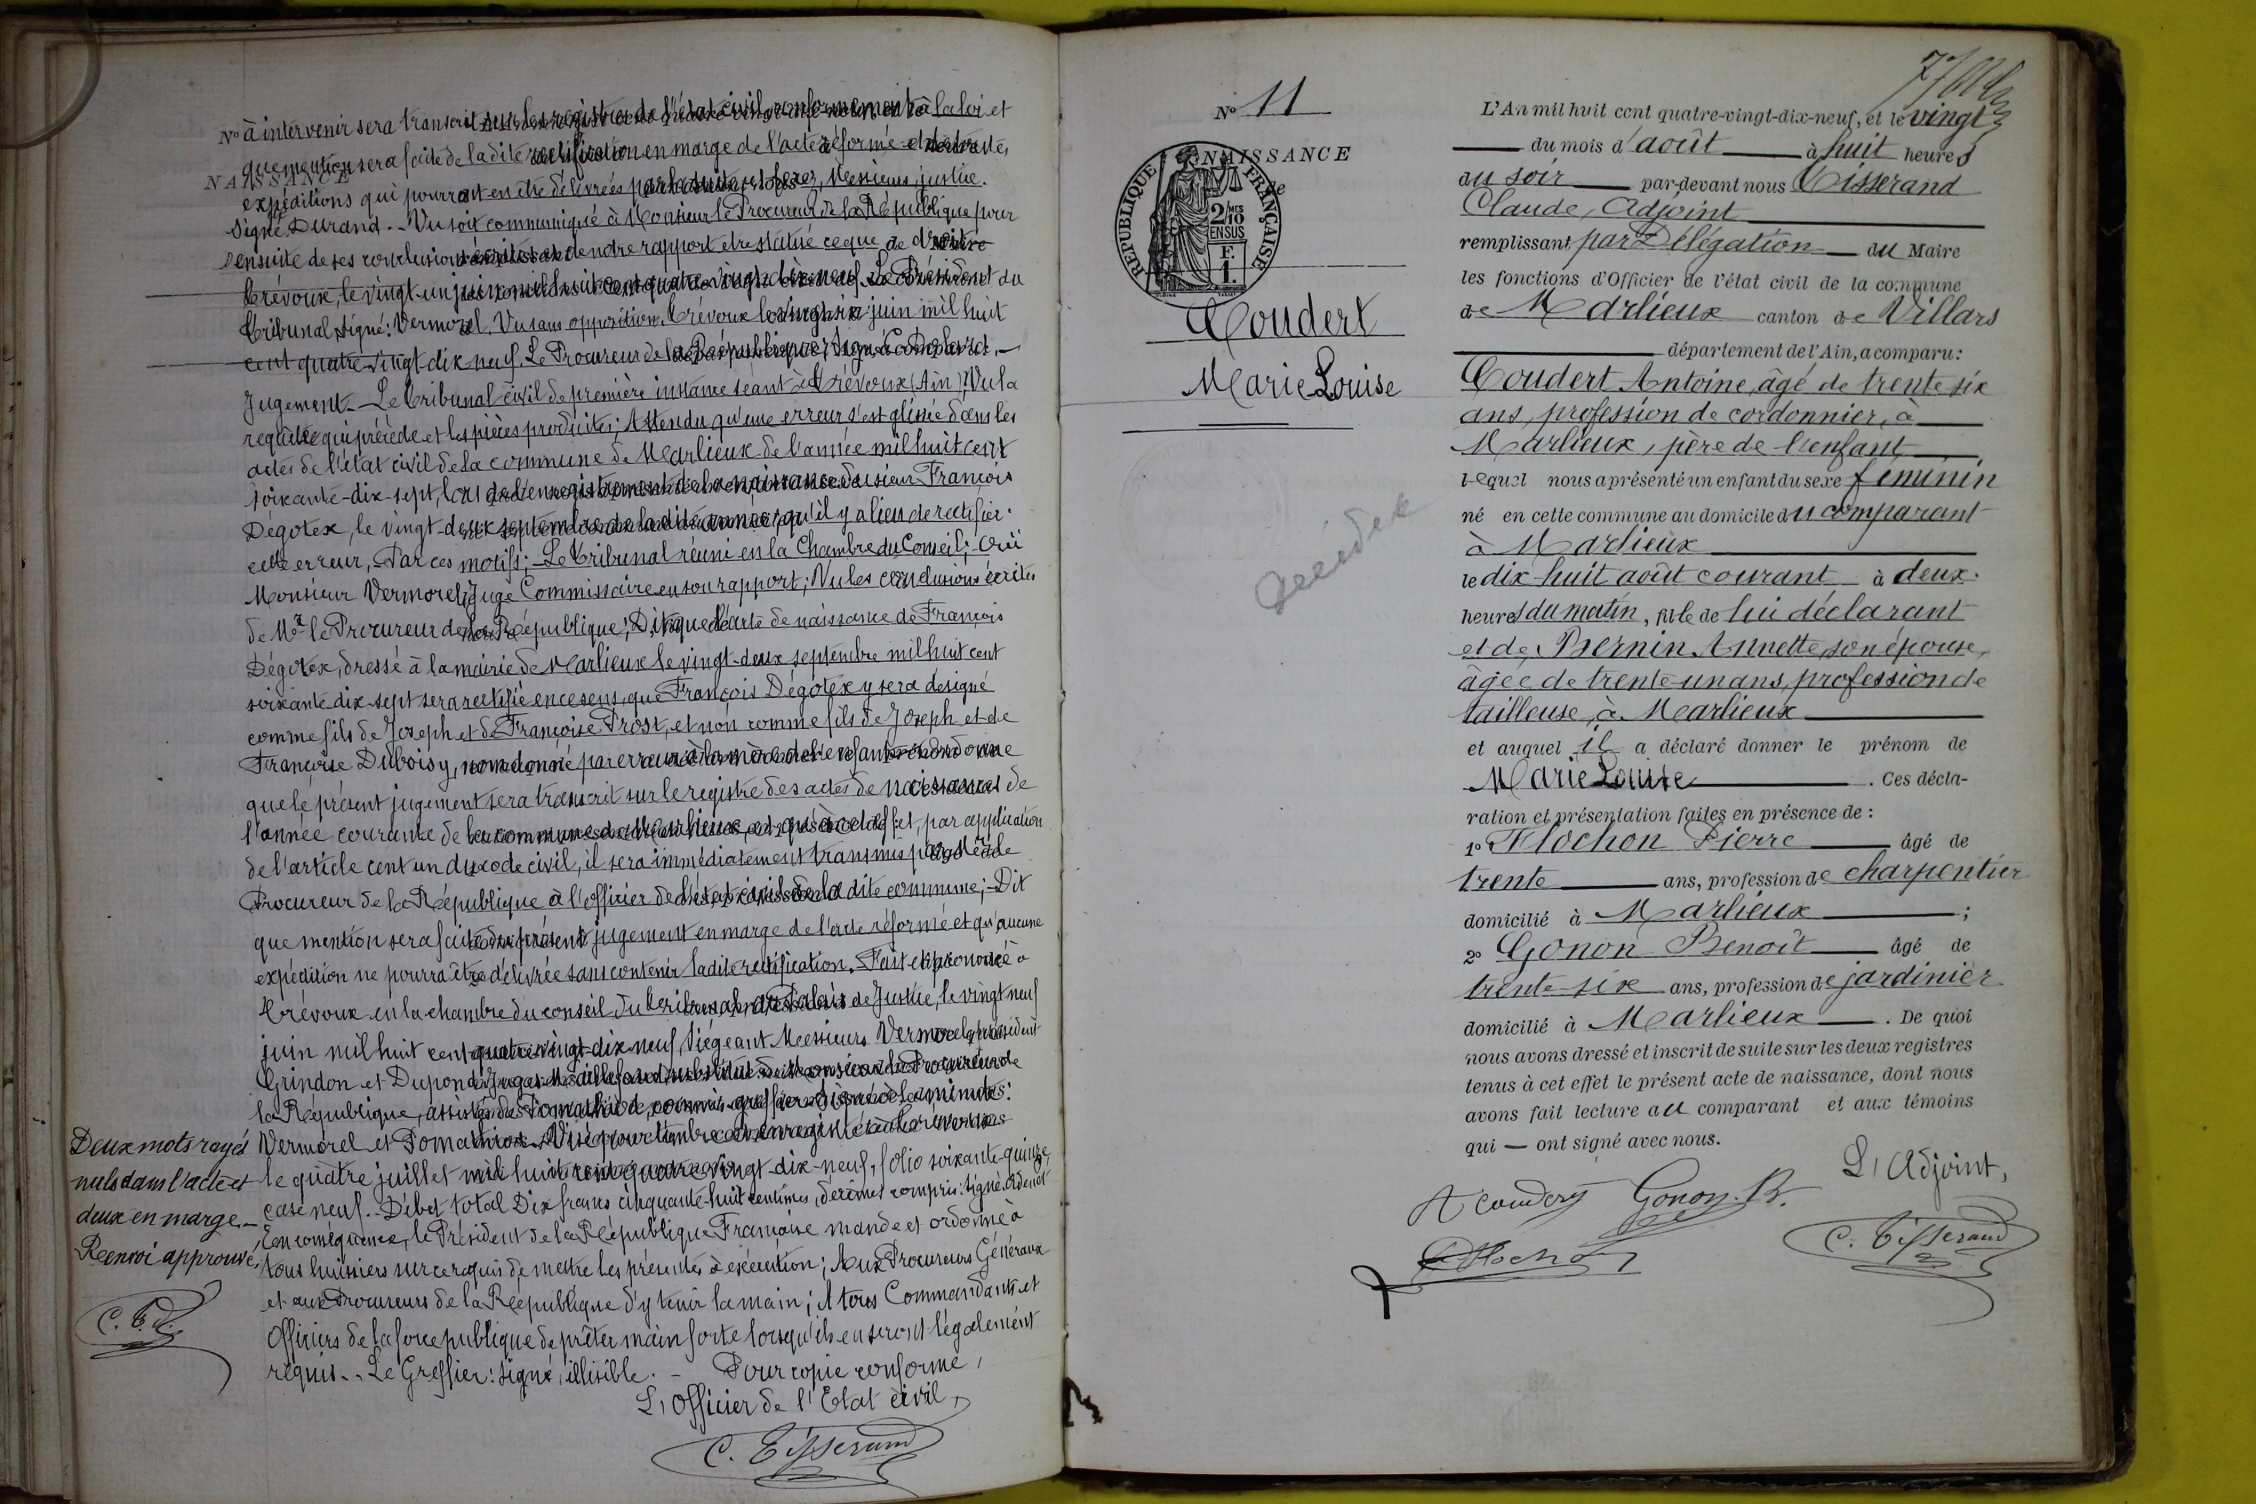 N° à intervenir sera transcrit sur les registres de l'état civil conformément à la loi et
que mention sera faite de la dite rectification en marge de l'acte réformé et
NAISSANCE
expéditions qui pourront en être délivrées justice.
Signé Durand. - Vu soit communiqué à Monsieur le Procureur de la République pour
ensuite de ses conclusions et de notre rapport être statué ce que de droit
Trévoux, le vingt-un juin mil huit cent quatre vingt dix-neuf. Le Président du
Tribunal signé: Vermorel. Vu sans opposition. Trévoux le vingt six juin mil huit
cent quatre-vingt-dix neuf. Le Procureur de la République, Signé
Jugement. - Le Tribunal civil de première instance séant à Trévoux (Ain) Vu la
requête qui précède et les pièces produites; Attendu qu'une erreur s'est glissée dans les
actes de l'état civil de la commune de Marlieux de l'année mil huit cent
soixante-dix-sept, lors de l'enregistrement de la naissance du sieur François
Dégotex, le vingt-deux septembre de la dite année; qu'il y a lieu de rectifier
cette erreur, Par ces motifs; - Le Tribunal réuni en la Chambre du Conseil; - Ouï
Monsieur Vermorel, Juge Commissaire en son rapport; Vu les conclusions écrites
de Mr le Procureur de la République; Dit que l'acte de naissance de François
Dégotex, dressé à la mairie de Marlieux le vingt-deux septembre mil huit cent
soixante dix-sept sera rectifié en ce sens, que François Dégotex y sera designé
comme fils de Joseph et de Françoise Prost, et non comme fils de Joseph et de
Françoise Duboisy, nom donné par erreur à la mère de l'enfant ordonne
que le présent jugement sera transcrit sur le registre des actes de naissances de
l'année courante de la commune de Marlieux, et qu'à cet effet, par application
de l'article cent un du code civil, il sera immédiatement transmis par Mr le
Procureur de la République à l'officier de l'état civil de la dite commune; - Dit
que mention sera faite du présent jugement en marge de l'acte réformé et qu'aucune
expédition ne pourra être délivrée sans contenir la dite rectification. Fait et prononcé à
Trévoux en la chambre du conseil du tribunal au Palais de Justice, le vingt neuf
juin mil huit cent quatre vingt-dix neuf, Siégeant Messieurs Vermorel, président
Grindon et Dupond, Juges substitut de Monsieur le Procureur de
la République, assistés de Tomathiod, commis-greffier Signé à la minute:
Vermorel et Tomathiod. Visé pour timbre et enregistré à Trévoux
le quatre juillet mil huit cent quatre vingt-dix-neuf, folio soixante-quinze,
case neuf. - Débet total Dix francs cinquante-huit centimes, décimes compris: signé:
En conséquence, le Président de la République Française mande et ordonne à
tous huissiers sur ce requis de mettre les présentes à exécution; Aux Procureurs Généraux
et aux Procureurs de la République d'y tenir la main; A tous Commandants et
Officiers de la force publique de prêter main forte lorsqu'ils en seront légalement
requis. - Le Greffier: signé, illisible. - Pour copie conforme,
L'Officier de l'Etat civil,
C. Tisserand
Deux mots rayés
nuls dans l'acte et
deux en marge. -
Renvoi approuvé,
C. T.
N° 11
NAISSANCE
de
RÉPUBLIQUE FRANÇAISE
2/10 MES
EN SUS
F.
1.
Coudert
Marie Louise
L'An mil huit cent quatre-vingt-dix-neuf, et le vingt
du mois d'août à huit heures
du soir par-devant nous Tisserand
Claude, Adjoint
remplissant par Délégation du Maire
les fonctions d'Officier de l'état civil de la commune
de Marlieux canton de Villars
département de l'Ain, a comparu:
Coudert Antoine, âgé de trente six
ans, profession de cordonnier, à
Marlieux, père de l'enfant,
lequel nous a présenté un enfant du sexe féminin
né en cette commune au domicile du comparant
à Marlieux
le dix-huit août courant à deux
heures du matin, fille de lui déclarant
et de Bernin Annette, son épouse,
âgée de trente-un ans, profession de
tailleuse, à Marlieux
et auquel il a déclaré donner le prénom de
Marie Louise. Ces décla-
ration et présentation faites en présence de :
1° Flochon Pierre âgé de
trente ans, profession de charpentier
domicilié à Marlieux ;
2° Gonon Benoît âgé de
trente-six ans, profession de jardinier
domicilié à Marlieux. De quoi
nous avons dressé et inscrit de suite sur les deux registres
tenus à cet effet le présent acte de naissance, dont nous
avons fait lecture au comparant et aux témoins
qui — ont signé avec nous.
L'Adjoint,
A Coudert Gonon. B.
C. Tisserand